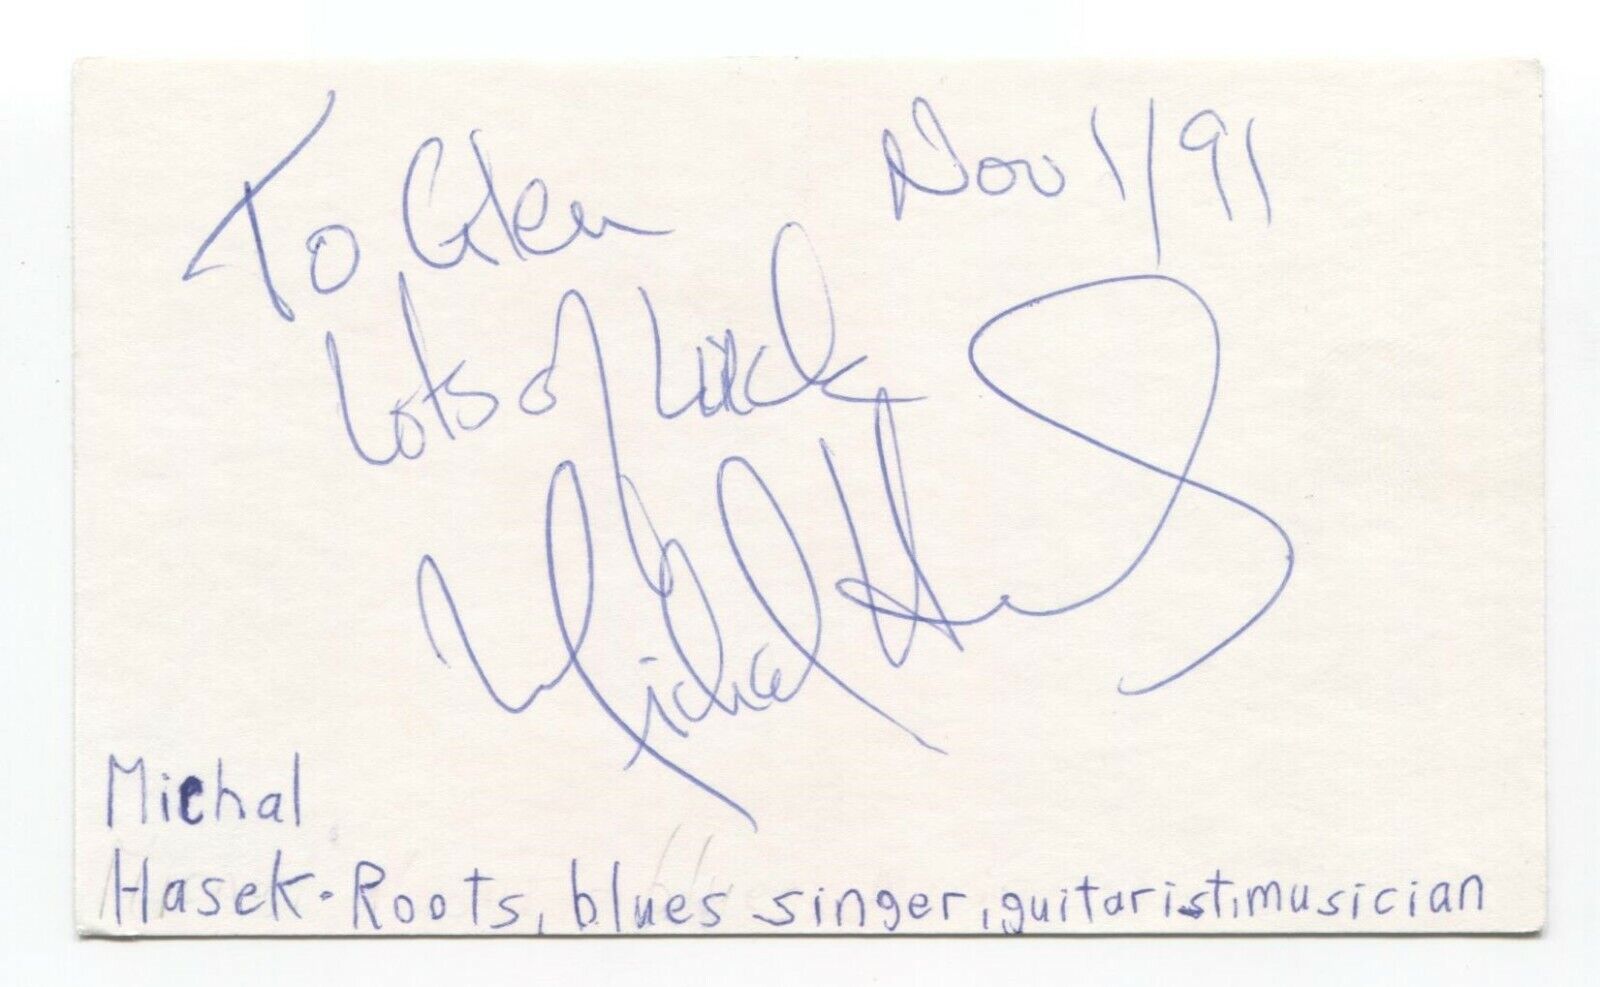 To Glen
Nov 1/91
Lots of Luck
Michal H
Michal
Hasek - Roots, blues singer, guitarist, musician